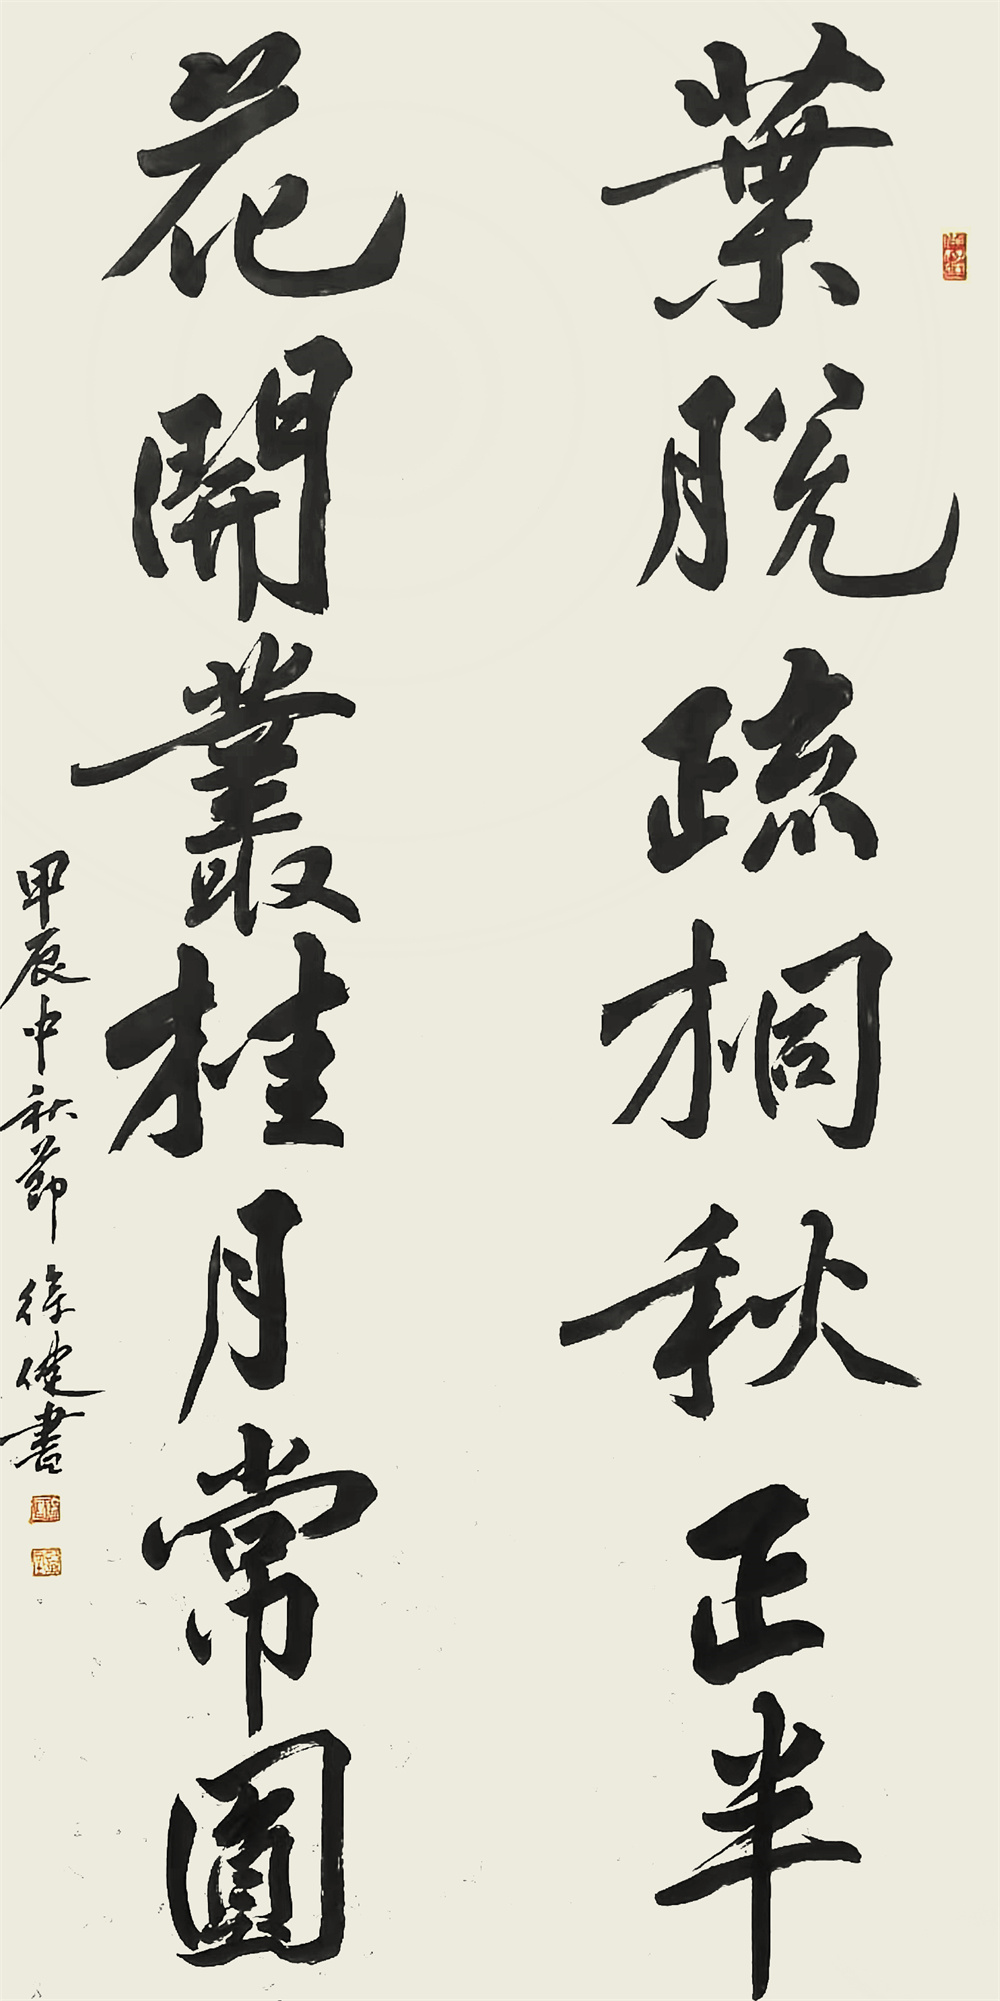 葉脫疏桐秋正半
花開叢桂月常圓
甲辰中秋節徐健書